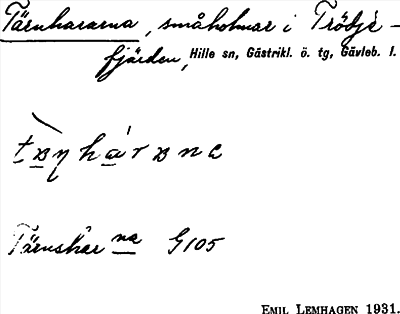 Tärnhararna, småholmar i Trödje-
fjärden, Hille sn, Gästrikl. ö. tg, Gävleb. l.
Tärnskär na G105
EMIL LEMHAGEN 1931.